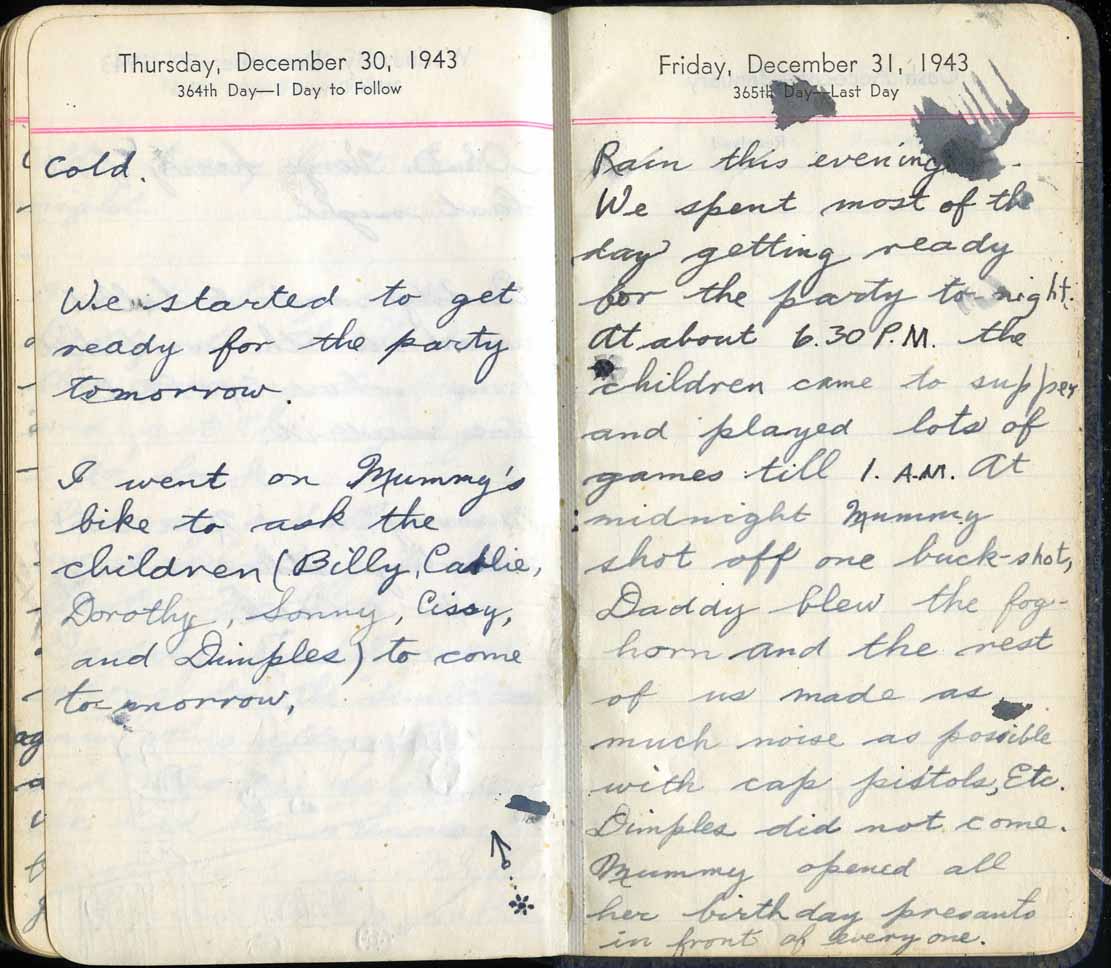 Thursday, December 30, 1943
364th Day—1 Day to Follow
Cold.
We started to get
ready for the party
tomorrow.
I went on Mummy's
bike to ask the
children (Billy, Callie,
Dorothy, Sonny, Cissy,
and Dimples) to come
to-morrow.
Friday, December 31, 1943
365th Day—Last Day
Rain this evening.
We spent most of the
day getting ready
for the party to-night.
At about 6.30 P.M. the
children came to supper
and played lots of
games till 1. A.M. At
midnight Mummy
shot off one buck-shot,
Daddy blew the fog-
horn and the rest
of us made as
much noise as possible
with cap pistols, Etc.
Dimples did not come.
Mummy opened all
her birthday presants
in front of everyone.